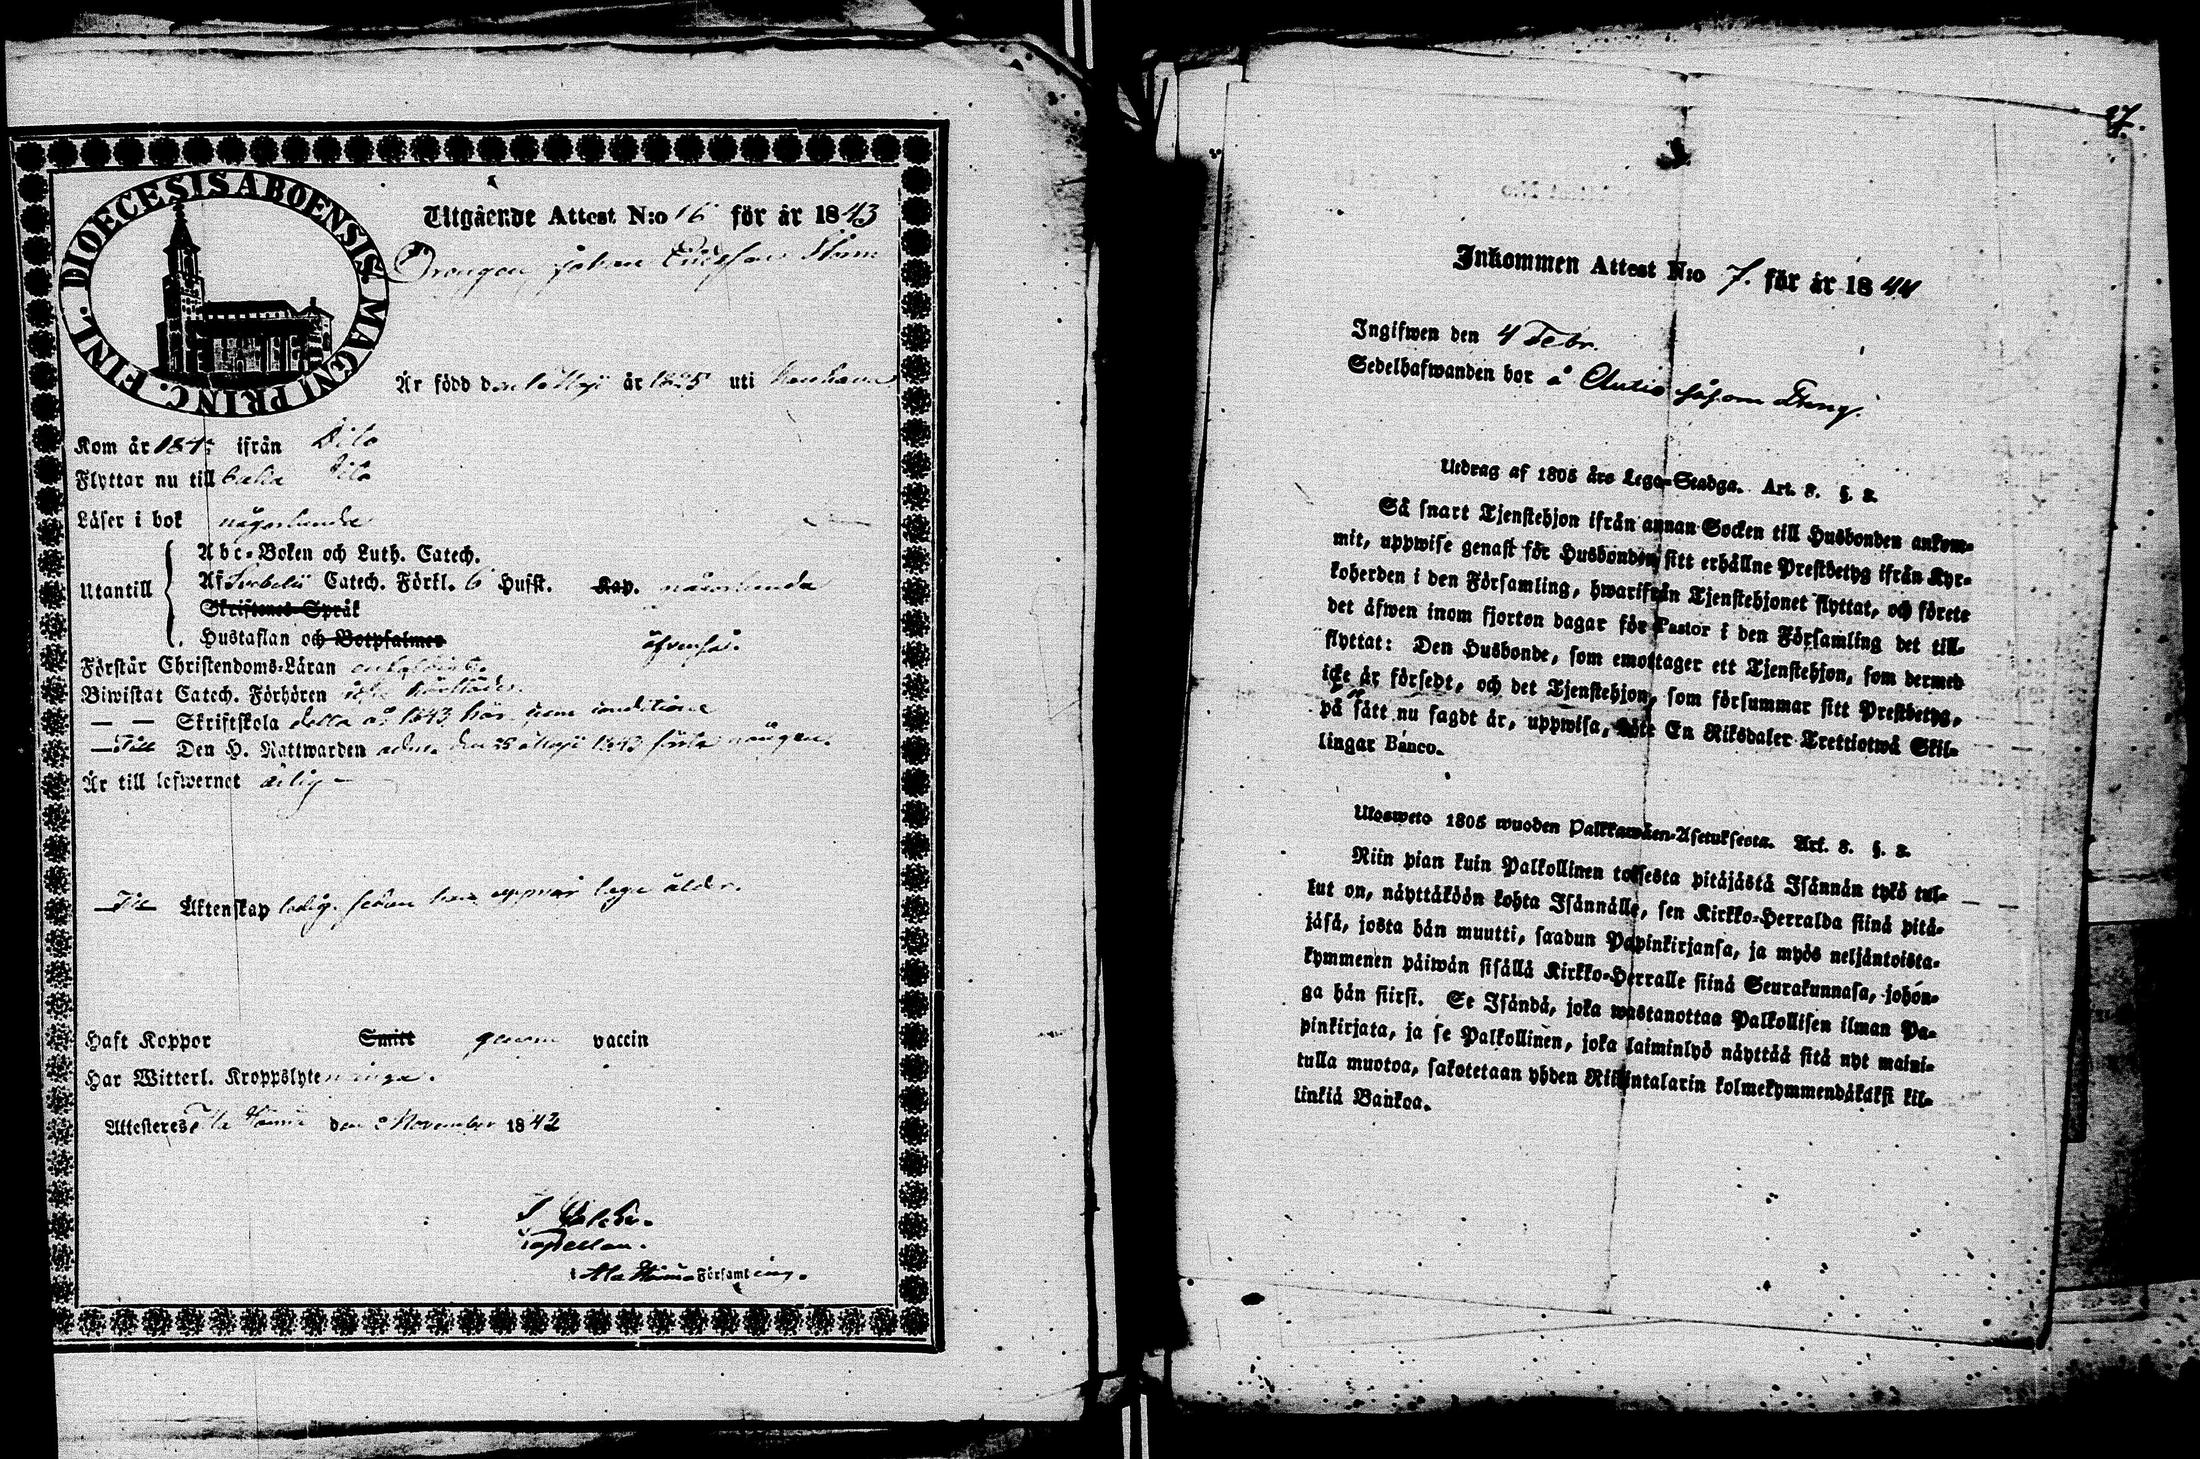 DIOECESIS ABOENSIS MAGNI PRINC. FINL.
Utgående Attest N:o 16 för år 1843
Drengen Johan
Är född den Maji år 1825 uti
Kom år 184 ifrån
Flyttar nu till
Läser i bok någorlunda
Utantill
Abc-Boken och Luth. Catech.
Af Svebelii Catech. Förkl. 6 Hufst. Kap. någorlunda
Skriftenes Språk
Hustaflan och Botpsalmer äfvenså.
Förstår Christendoms-Läran enfaldigt.
Biwistat Catech. Förhören
— — Skriftskola detta år 1843 här
— Till Den H. Nattwarden den 25 Maji 1843 första gången.
Är till lefwernet ärlig
— Till Äktenskap ledig, sedan han uppnår laga ålder.
Haft Koppor Smitt genom vaccin
Har Witterl. Kroppslyten inga.
Attesteras den 2 November 1843
Capellan.
i Församling.
27.
Inkommen Attest N:o 7. för år 1844
Ingifwen den 4 Febr.
Sedelhafwanden bor å Autio såsom Dreng.
Utdrag af 1805 års Lego-Stadga. Art. 8. §. 2.
Så snart Tjenstehjon ifrån annan Socken till Husbonden ankom-
mit, uppwise genast för Husbonden sitt erhållne Prestbetyg ifrån Kyr-
koherden i den Församling, hwarifrån Tjenstehjonet flyttat, och förete
det äfwen inom fjorton dagar för Pastor i den Församling det till-
flyttat: Den Husbonde, som emottager ett Tjenstehjon, som dermed
icke är försedt, och det Tjenstehjon, som försummar sitt Prestbetyg,
på sätt nu sagdt är, uppwisa, böte En Riksdaler Trettiotwå Skil-
lingar Banco.
Ulosweto 1805 wuoden Palkkawäen-Asetuksesta. Art. 8. §. 2.
Niin pian kuin Palkollinen toisesta pitäjästä Isännän tykö tul-
lut on, näyttäköön kohta Isännälle, sen Kirkko-Herralda siinä pitä-
jäsä, josta hän muutti, saadun Papinkirjansa, ja myös neljäntoista-
kymmenen päiwän sisällä Kirkko-Herralle siinä Seurakunnasa, johon-
ga hän siirsi. Se Isändä, joka wastanottaa Palkollisen ilman Pa-
pinkirjata, ja se Palkollinen, joka laiminlyö näyttää sitä nyt maini-
tulla muotoa, sakotetaan yhden Riikintalarin kolmekymmendäkaksi kil-
linkiä Bankoa.